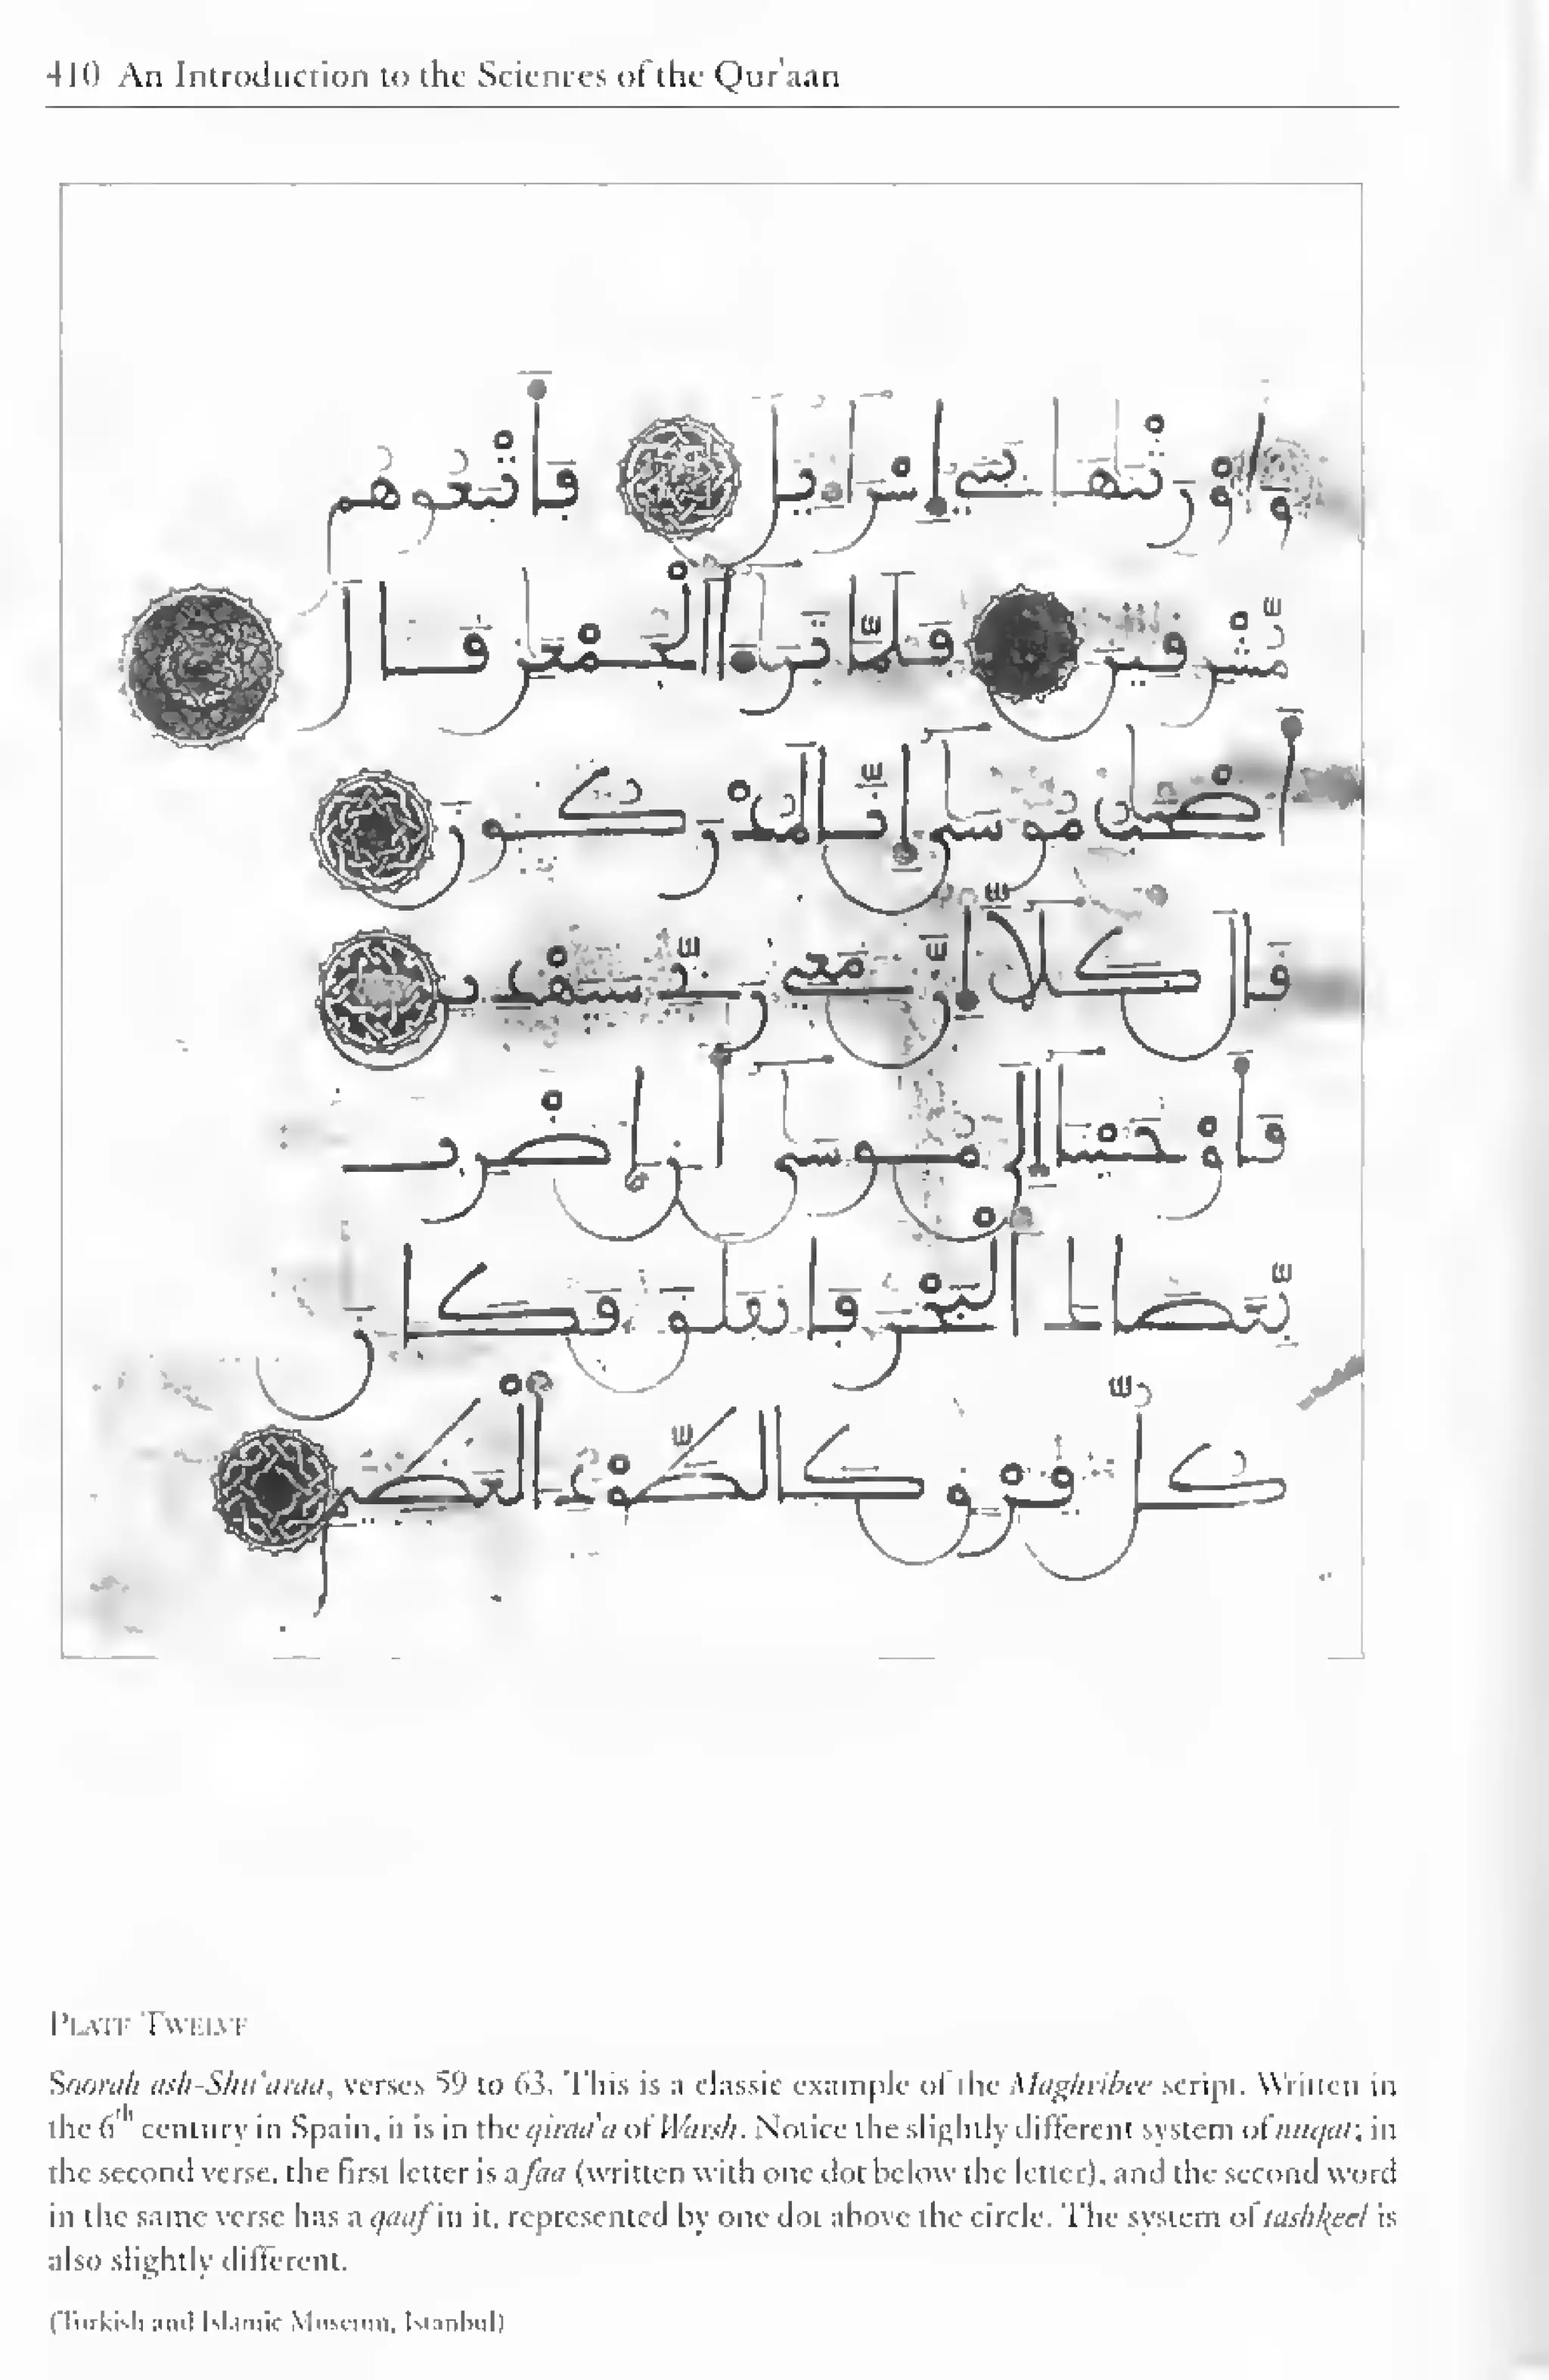 410 An Introduction to the Sciences of the Qur'aan
وأورثنها بني إسراءيل فأتبعوهم
مشرقين فلما ترءا الجمعن قال
أصحب موسى إنا لمدركون
قال كلا إن معي ربي سيهدين
فأوحينا إلى موسى أن اضرب
بعصاك البحر فانفلق فكان
كل فرق كالطود العظيم
PLATE TWELVE
Soorah ash-Shu'araa, verses 59 to 63. This is a classic example of the Maghribee script. Written in
the 6th century in Spain, it is in the qiraa'a of Warsh. Notice the slightly different system of nuqat; in
the second verse, the first letter is a faa (written with one dot below the letter), and the second word
in the same verse has a qaaf in it, represented by one dot above the circle. The system of tashkeel is
also slightly different.
(Turkish and Islamic Museum, Istanbul)